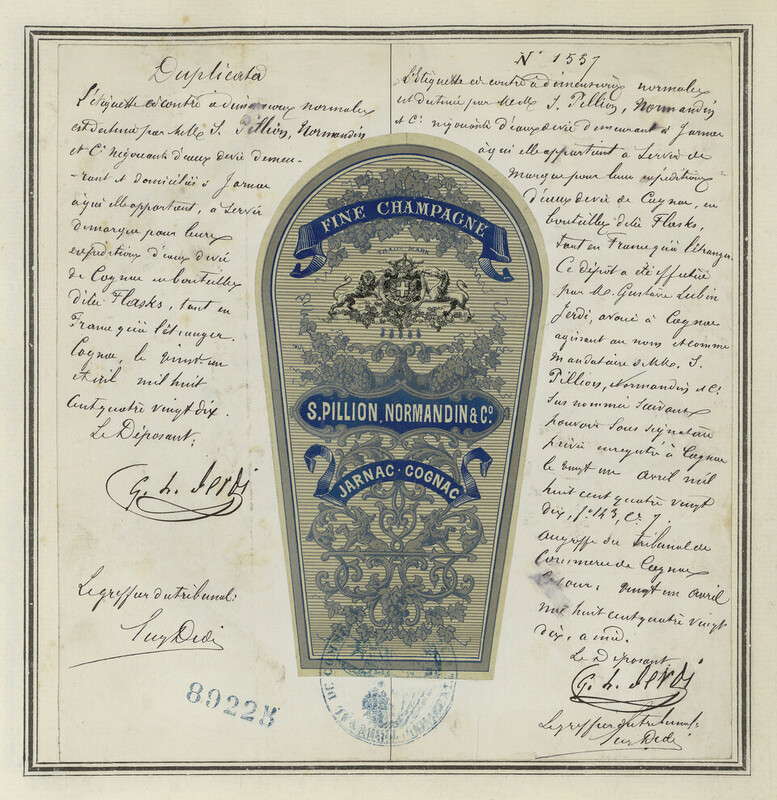 Duplicata
L'étiquette ci contre à dimensions normales
est destinée par MM. S. Pillion, Normandin
et Cie négociants d'eaux de vie demeu-
rant et domiciliés à Jarnac
à qui elle appartient, à servir
de marque pour leurs
expéditions d'eaux de vie
de Cognac en bouteilles
dites Flasks, tant en
France qu'à l'étranger.
Cognac, le vingt un
avril mil huit
cent quatre vingt dix.
Le Déposant,
G. L. Jerdi
Le greffier du tribunal:
89223
FINE CHAMPAGNE
TRADE MARK
S. PILLION, NORMANDIN & Co
JARNAC - COGNAC
TRIBUNAL DE
N° 1557
L'Etiquette ci contre à dimensions normales
est destinée par MM. S. Pillion, Normandin
et Cie négociants d'eaux de vie demeurant à Jarnac
à qui elle appartient à servir de
marque pour leurs expéditions
d'eaux de vie de Cognac, en
bouteilles dites Flasks,
tant en France qu'à l'étranger.
Ce dépôt a été effectué
par M. Gustave Lubin
Jerdi, avoué à Cognac
agissant au nom et comme
mandataire de MM. S.
Pillion, Normandin et Cie
sus nommés suivant
pouvoir sous signature
privée enregistré à Cognac
le vingt un avril mil
huit cent quatre vingt
dix, fo 143, Co 7.
au greffe du tribunal de
Commerce de Cognac
ce jour, vingt un avril
mil huit cent quatre vingt
dix, à midi.
Le Déposant
G. L. Jerdi
Le greffier du tribunal: